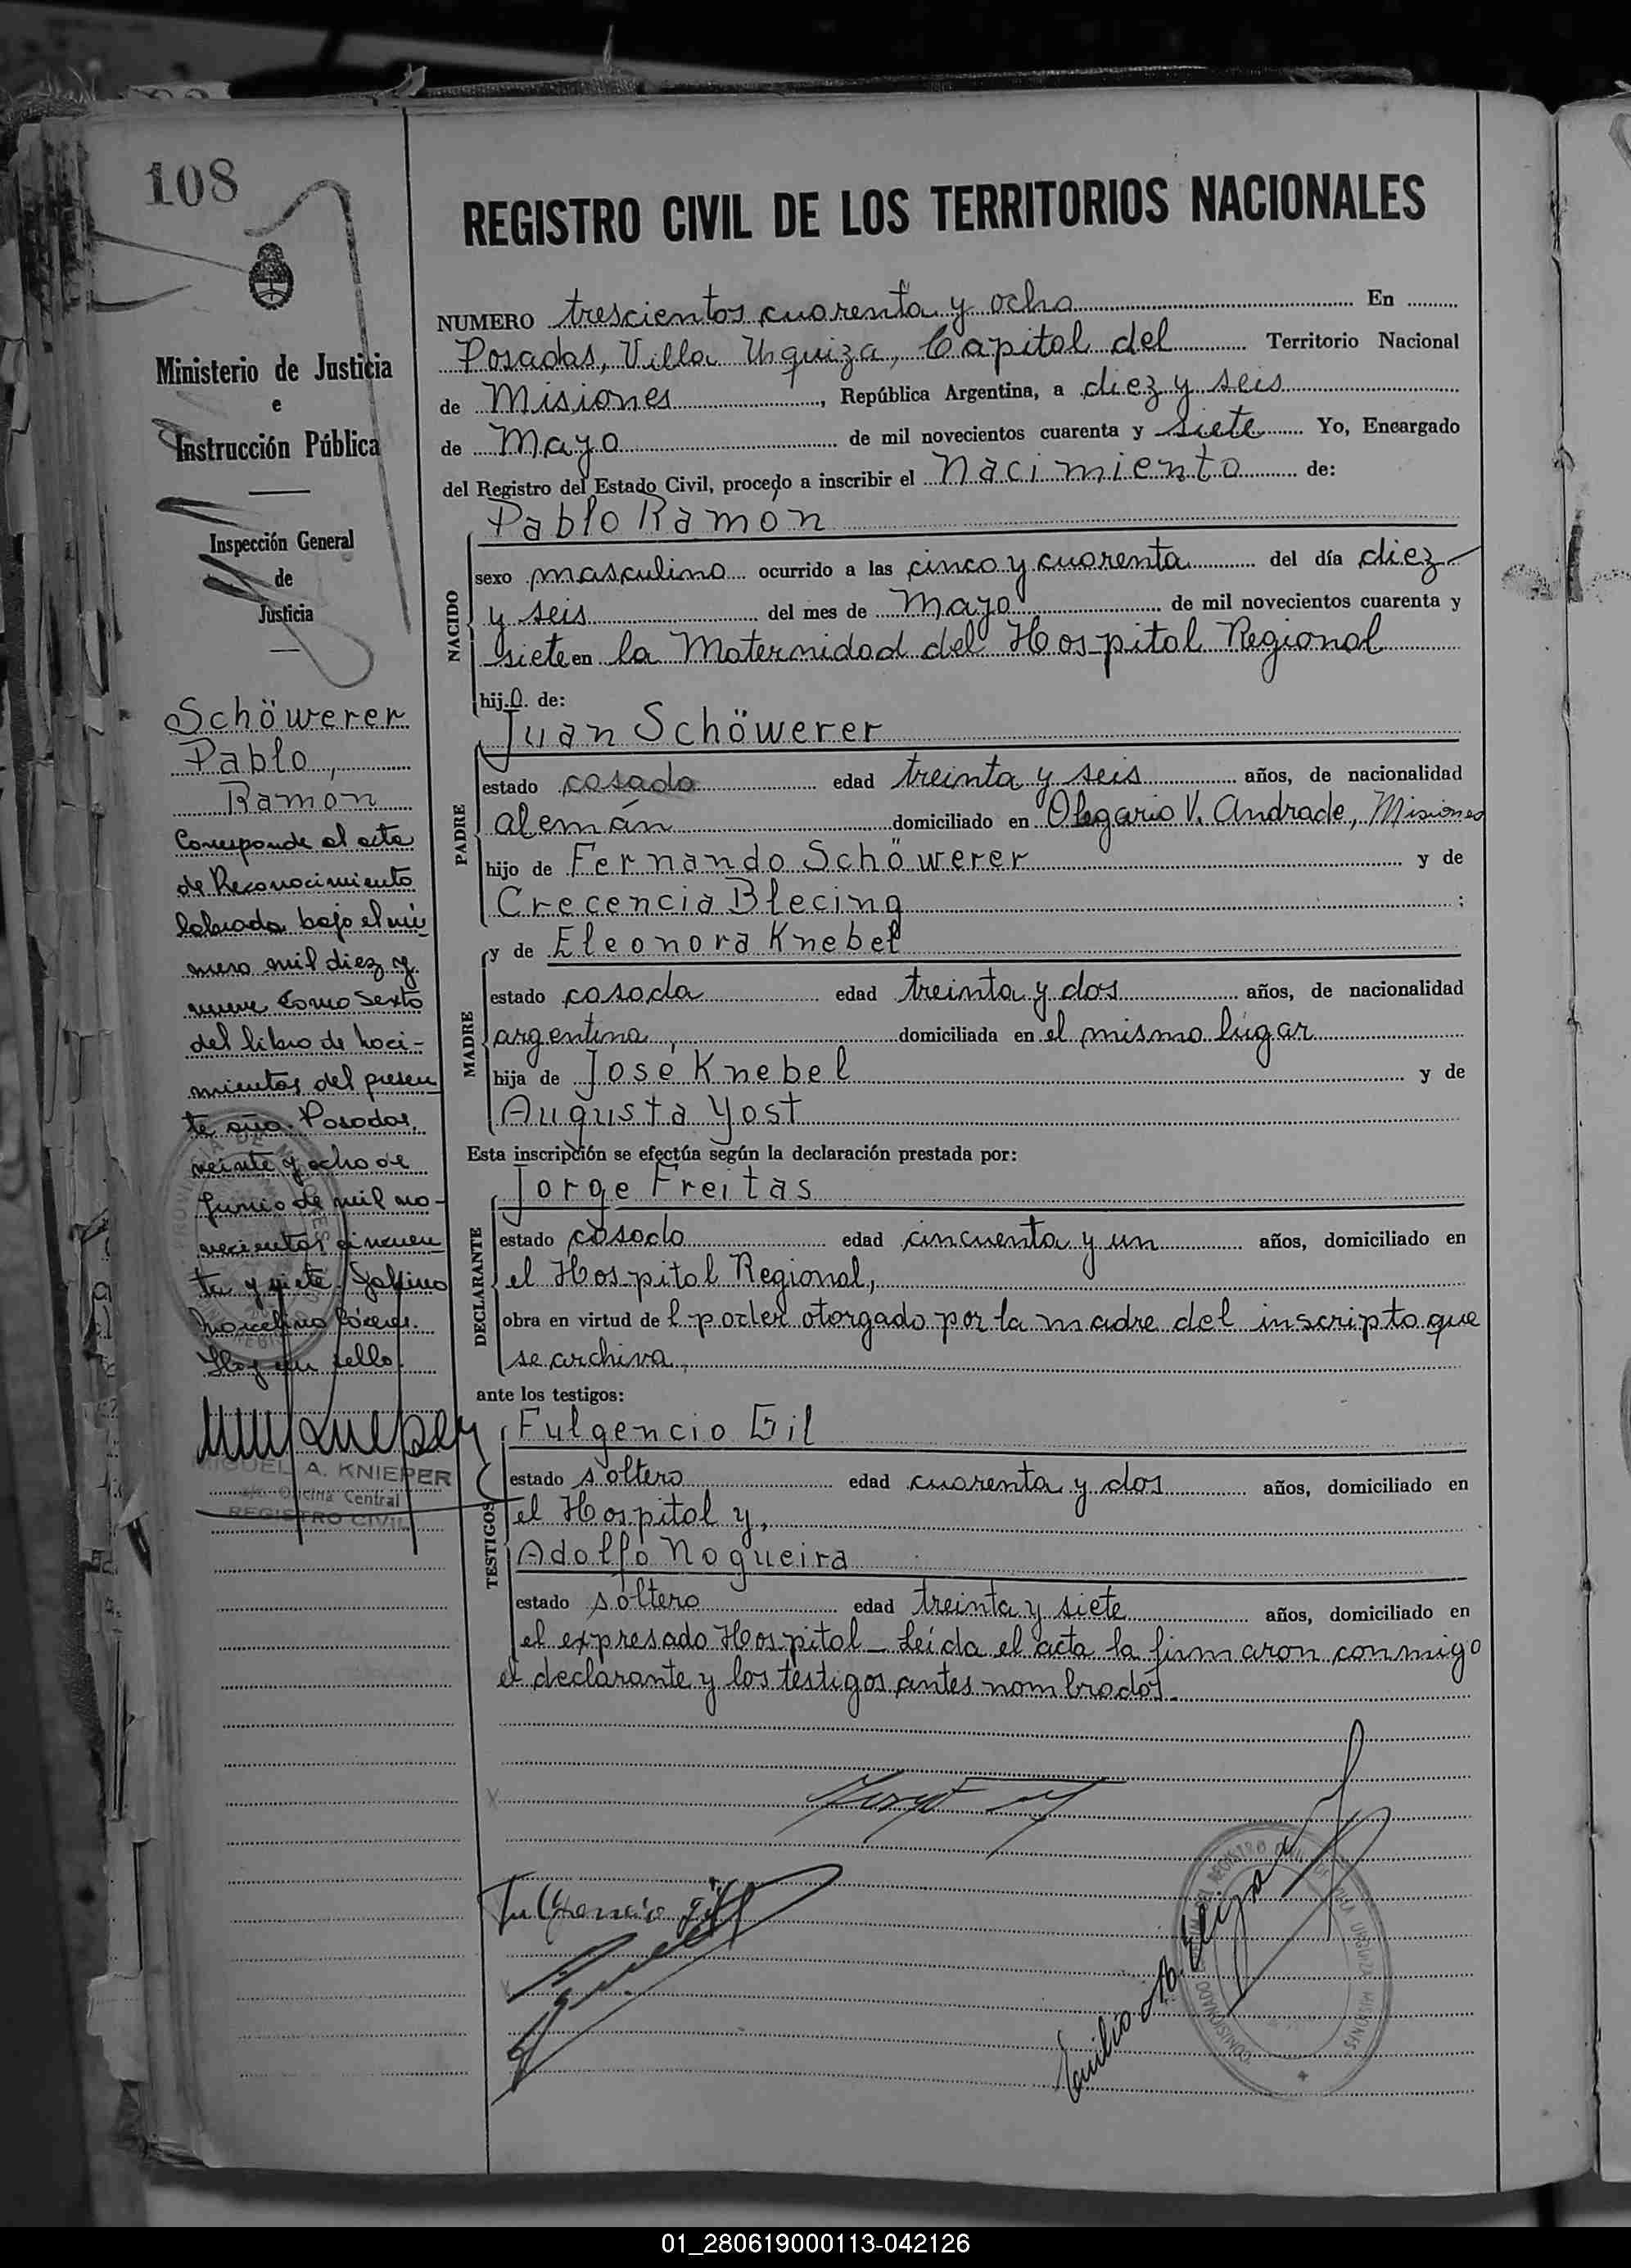 108
REGISTRO CIVIL DE LOS TERRITORIOS NACIONALES
Ministerio de Justicia
e
Instrucción Pública
Inspección General
de
Justicia
Schöwerer
Pablo,
Ramón
Corresponde al acta
de Reconocimiento
labrada bajo el nú
mero mil diez y
nueve Tomo Sexto
del libro de naci-
mientos del presen
te año. Posadas,
veinte y ocho de
Junio de mil no-
vecientos cincuen
ta y siete.
Hay un sello.
MIGUEL A. KNIEPER
Oficina Central
REGISTRO CIVIL
NUMERO trescientos cuarenta y ocho En
Posadas, Villa Urquiza, Capital del Territorio Nacional
de Misiones, República Argentina, a diez y seis
de Mayo de mil novecientos cuarenta y siete Yo, Encargado
del Registro del Estado Civil, procedo a inscribir el Nacimiento de:
Pablo Ramón
NACIDO
sexo masculino ocurrido a las cinco y cuarenta del día diez
y seis del mes de Mayo de mil novecientos cuarenta y
siete en la Maternidad del Hospital Regional
hijo de:
Juan Schöwerer
PADRE
estado casado edad treinta y seis años, de nacionalidad
alemán domiciliado en Olegario V. Andrade, Misiones
hijo de Fernando Schöwerer y de
Crecencia Blecing ;
y de Eleonora Knebel
MADRE
estado casada edad treinta y dos años, de nacionalidad
argentina, domiciliada en el mismo lugar
hija de José Knebel y de
Augusta Yost
Esta inscripción se efectúa según la declaración prestada por:
Jorge Freitas
DECLARANTE
estado casado edad cincuenta y un años, domiciliado en
el Hospital Regional,
obra en virtud del poder otorgado por la madre del inscripto que
se archiva,
ante los testigos:
Fulgencio Gil
TESTIGOS
estado soltero edad cuarenta y dos años, domiciliado en
el Hospital y,
Adolfo Nogueira
estado soltero edad treinta y siete años, domiciliado en
el expresado Hospital - Leída el acta la firmaron conmigo
el declarante y los testigos antes nombrados.
Fulgencio Gil
01_280619000113-042126